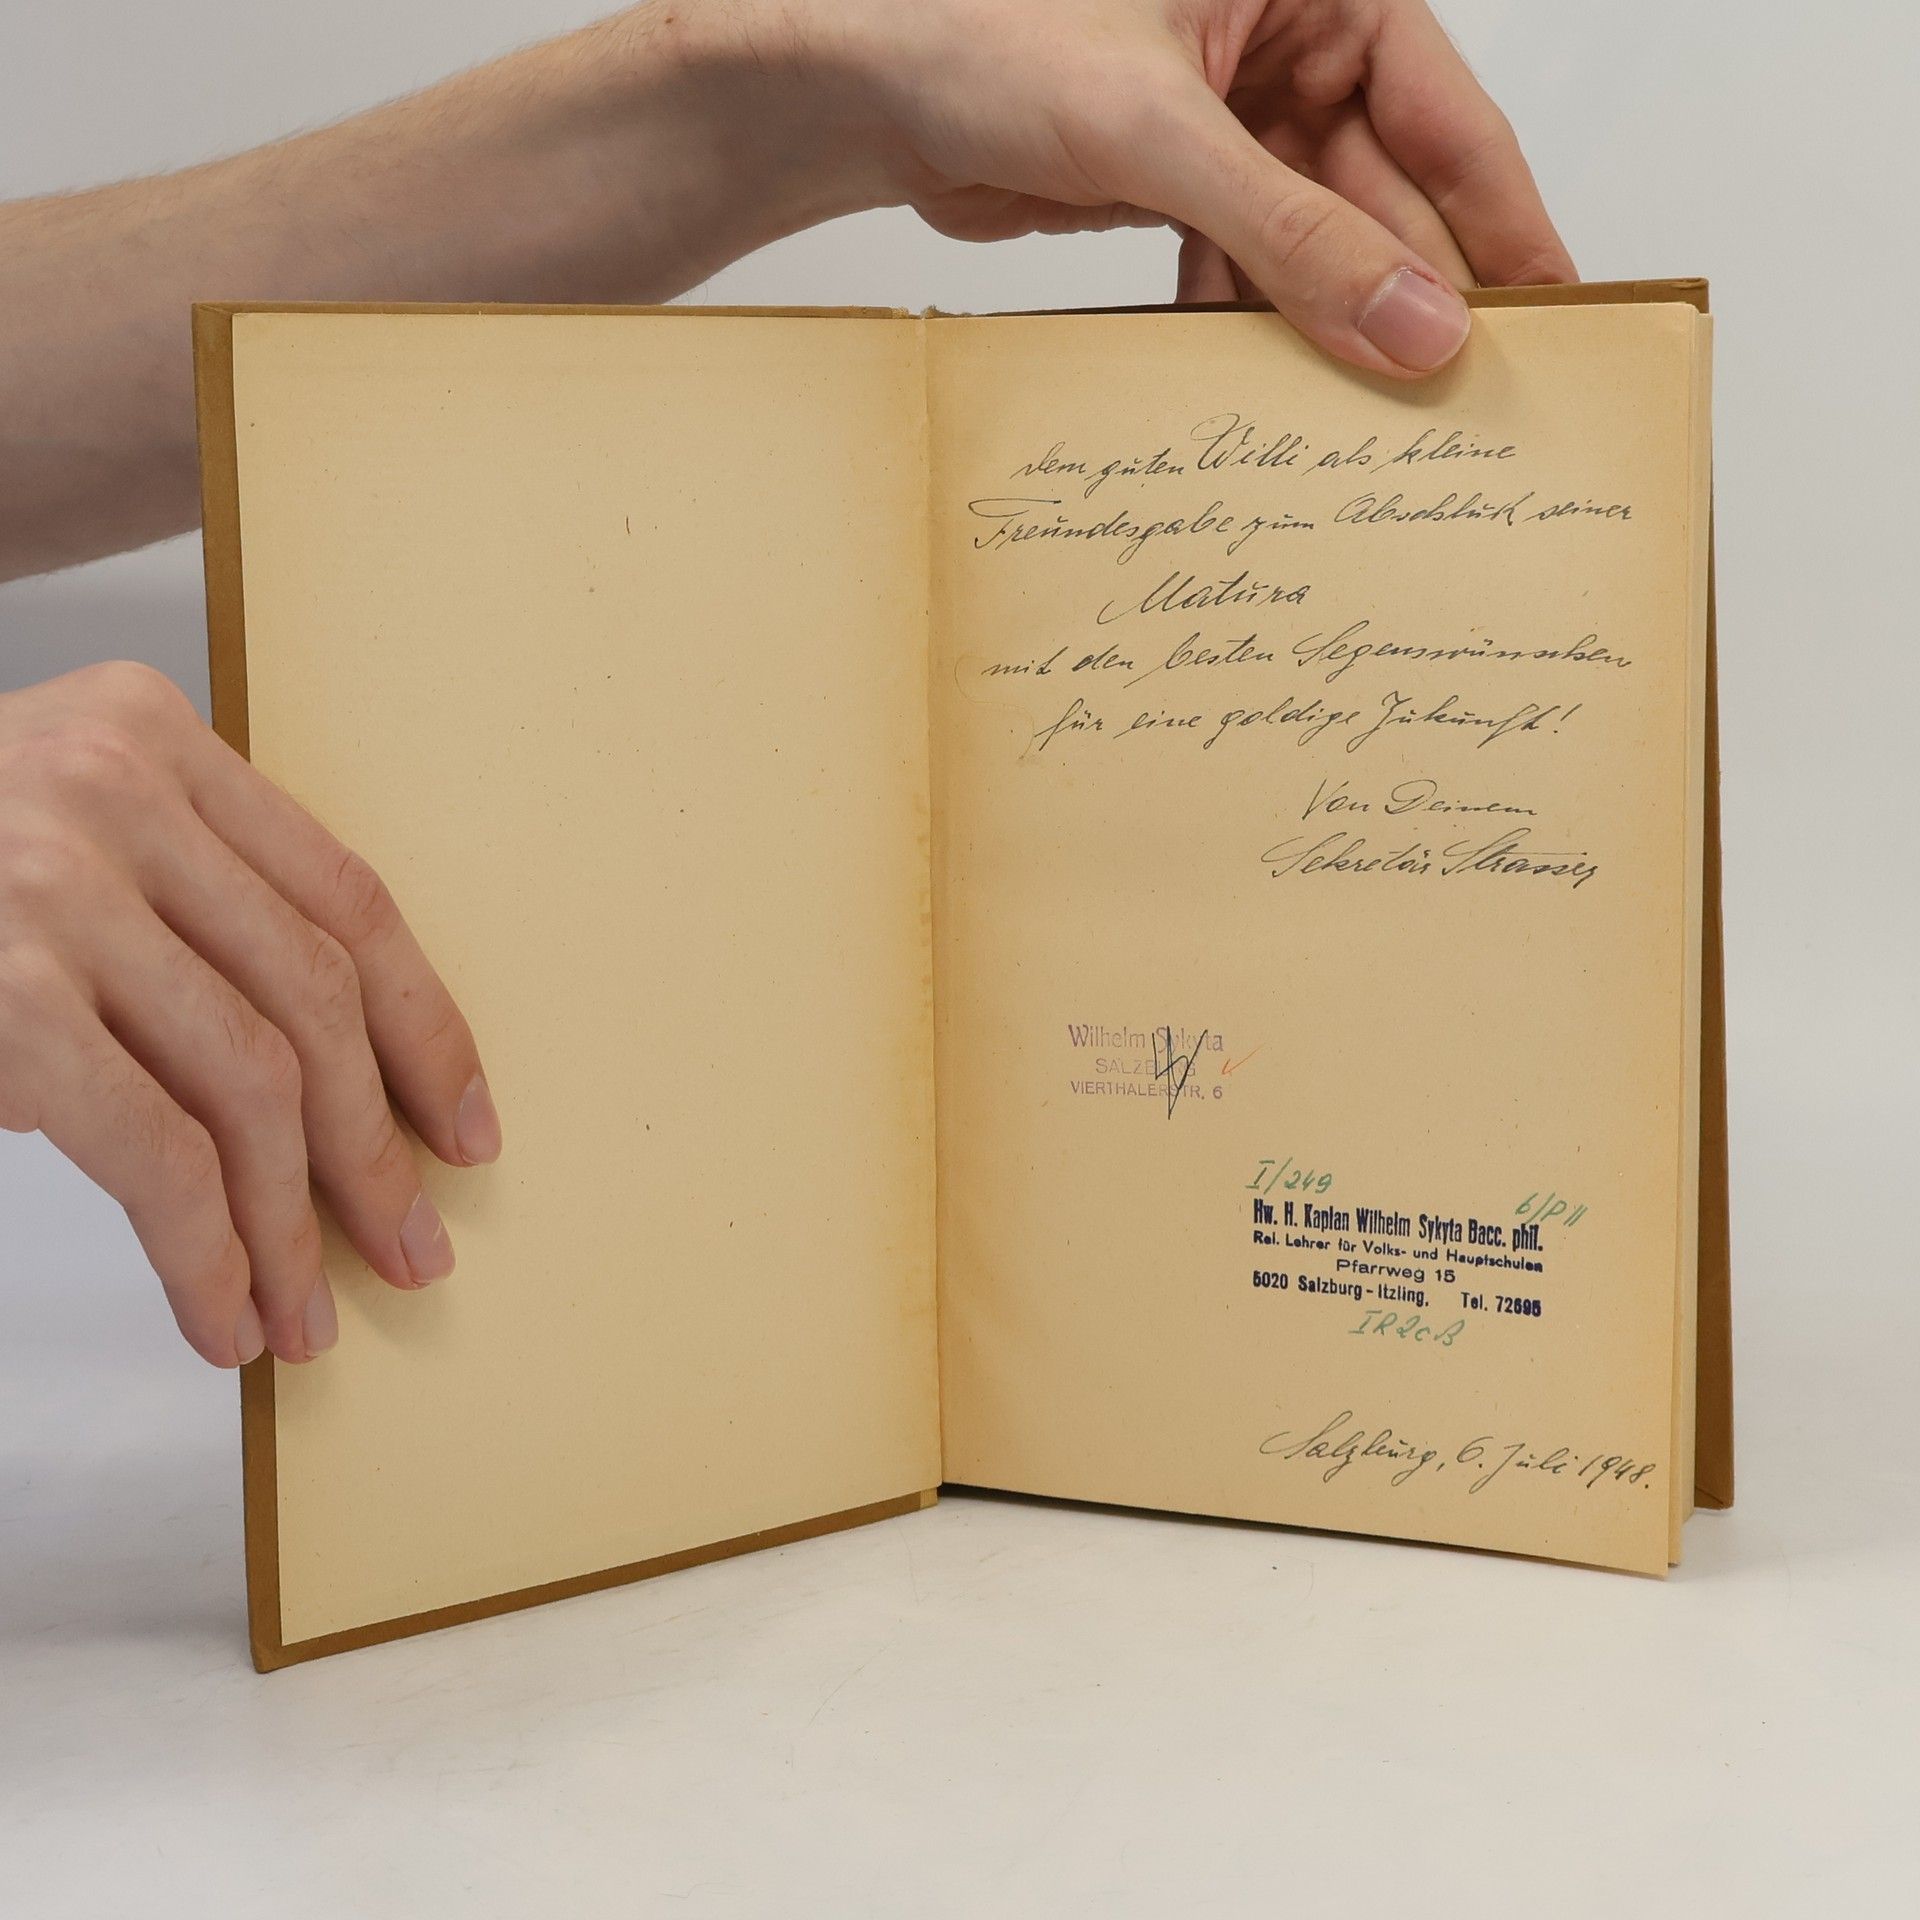 Dem guten Willi als kleine
Freundesgabe zum Abschluß seiner
Matura
mit den besten Segenswünschen
für eine goldige Zukunft!
Von Deinem
Sekretär Strasser
Wilhelm Sykyta
SALZBURG
VIERTHALERSTR. 6
I/249
6/P II
Hw. H. Kaplan Wilhelm Sykyta Bacc. phil.
Rel. Lehrer für Volks- und Hauptschulen
Pfarrweg 15
5020 Salzburg - Itzling, Tel. 72695
IR2cB
Salzburg, 6. Juli 1948.